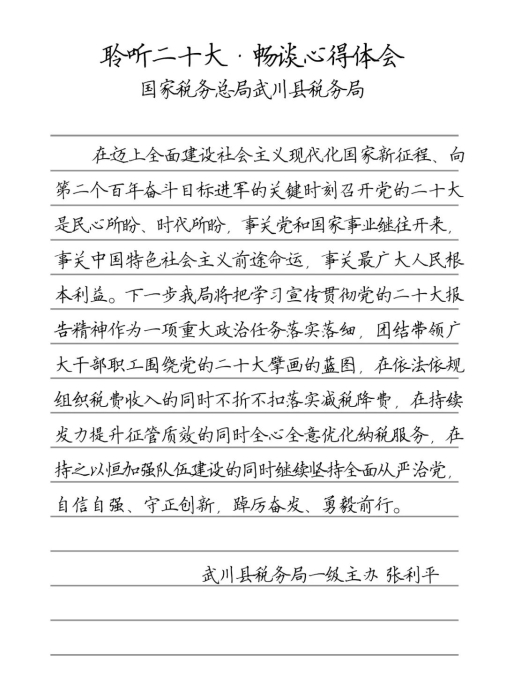 聆听二十大·畅谈心得体会
国家税务总局武川县税务局
在迈上全面建设社会主义现代化国家新征程、向
第二个百年奋斗目标进军的关键时刻召开党的二十大
是民心所盼、时代所盼，事关党和国家事业继往开来，
事关中国特色社会主义前途命运，事关最广大人民根
本利益。下一步我局将把学习宣传贯彻党的二十大报
告精神作为一项重大政治任务落实落细，团结带领广
大干部职工围绕党的二十大擘画的蓝图，在依法依规
组织税费收入的同时不折不扣落实减税降费，在持续
发力提升征管质效的同时全心全意优化纳税服务，在
持之以恒加强队伍建设的同时继续坚持全面从严治党，
自信自强、守正创新，踔厉奋发、勇毅前行。
武川县税务局一级主办 张利平